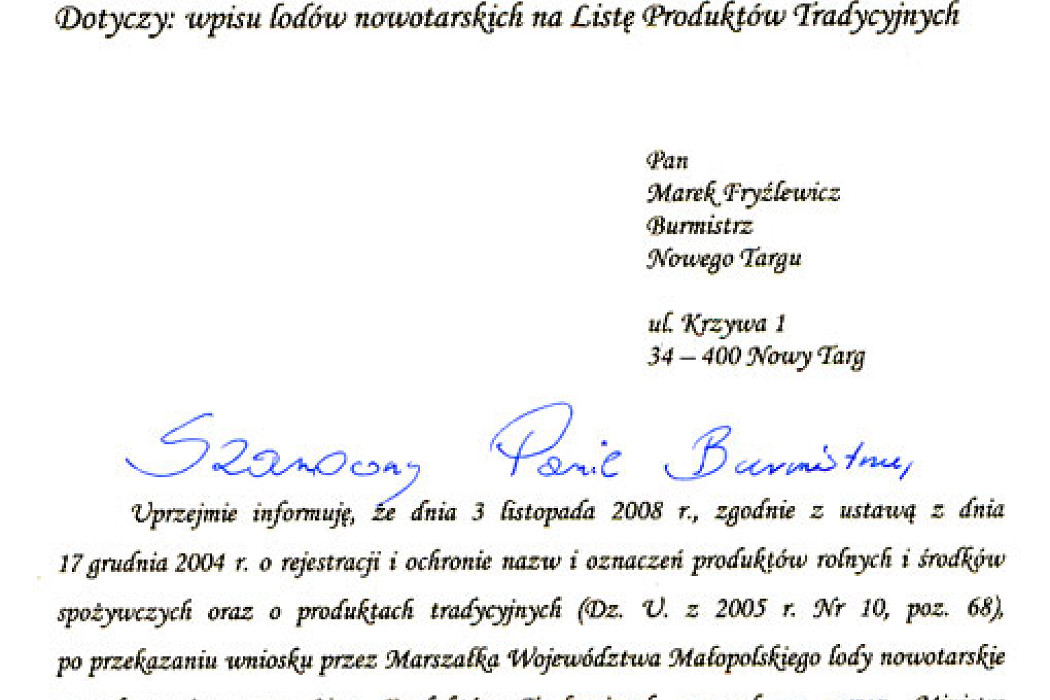 Dotyczy: wpisu lodów nowotarskich na Listę Produktów Tradycyjnych
Pan
Marek Fryźlewicz
Burmistrz
Nowego Targu
ul. Krzywa 1
34 – 400 Nowy Targ
Szanowny Panie Burmistrzu,
Uprzejmie informuję, że dnia 3 listopada 2008 r., zgodnie z ustawą z dnia
17 grudnia 2004 r. o rejestracji i ochronie nazw i oznaczeń produktów rolnych i środków
spożywczych oraz o produktach tradycyjnych (Dz. U. z 2005 r. Nr 10, poz. 68),
po przekazaniu wniosku przez Marszałka Województwa Małopolskiego lody nowotarskie